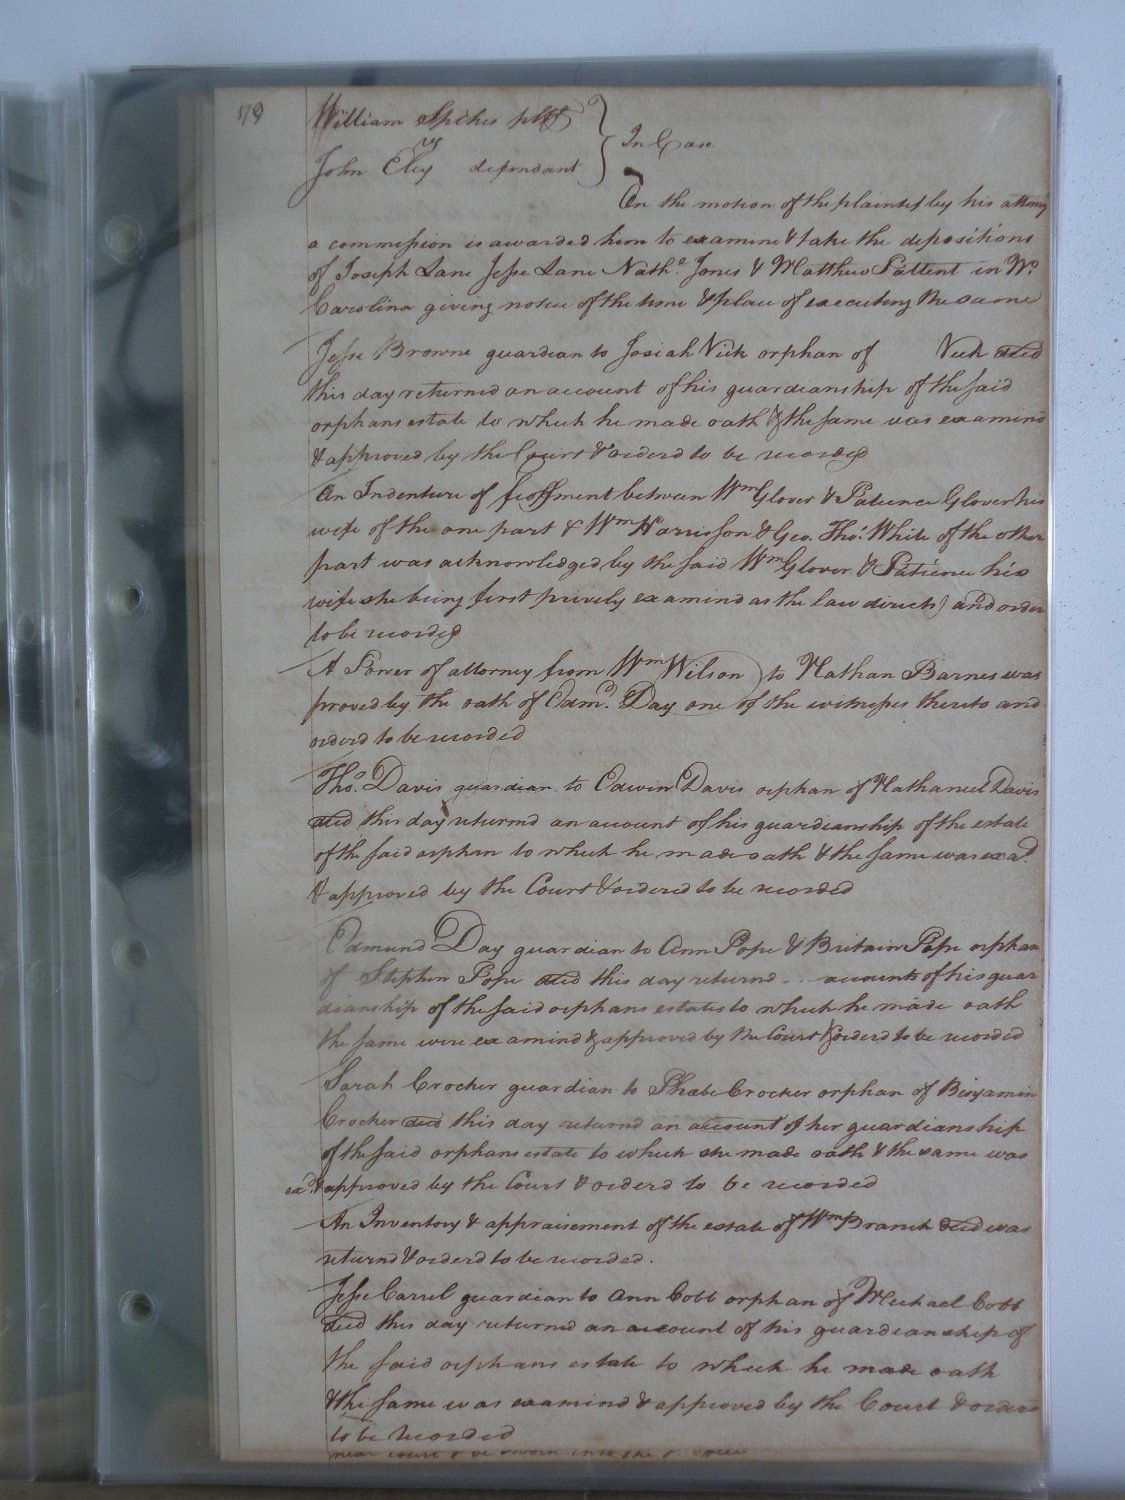 179
William Spikes pltff
vs
John Eley defendant
In Case
On the motion of the plaintif by his attorny
a commission is awarded him to examine & take the depositions
of Joseph Lane Jesse Lane Nath.l Jones & Matthew Pattent in No.
Carolina giving notice of the time & place of executing the same
Jesse Browne guardian to Josiah Vick orphan of Vick decd
this day returned an account of his guardianship of the said
orphans estate to which he made oath & the same was examined
& approved by the Court & orderd to be recorded
An Indenture of feoffment between Wm Glover & Patience Glover his
wife of the one part & Wm Harrisson & Geo. Tho.s White of the other
part was acknowledged by the said Wm Glover & Patience his
wife she being first privily examind as the law directs) and order
to be recorded
A Power of attorney from Wm Wilson to Nathan Barnes was
proved by the oath of Edm.d Day one of the witnesses thereto and
orderd to be recorded
Tho.s Davis guardian to Edwin Davis orphan of Nathaniel Davis
decd this day returnd an account of his guardianship of the estate
of the said orphan to which he made oath & the same was exa.d
& approved by the Court & ordered to be recorded
Edmund Day guardian to Ann Pope & Britain Pope orphan
of Stephen Pope decd this day returnd accounts of his guar
dianship of the said orphans estates to which he made oath
the same were examind & approved by the Court & orderd to be recorded
Sarah Crocker guardian to Phebe Crocker orphan of Benjamin
Crocker decd this day returnd an account of her guardianship
of the said orphans estate to which she made oath & the same was
exd. & approved by the Court & orderd to be recorded
An Inventory & appraisement of the estate of Wm Branch decd was
returnd & orderd to be recorded.
Jesse Carrel guardian to Ann Cobb orphan of Michael Cobb
decd this day returned an account of his guardianship of
the said orphans estate to which he made oath
& the same was examind & approved by the Court & orderd
to be recorded